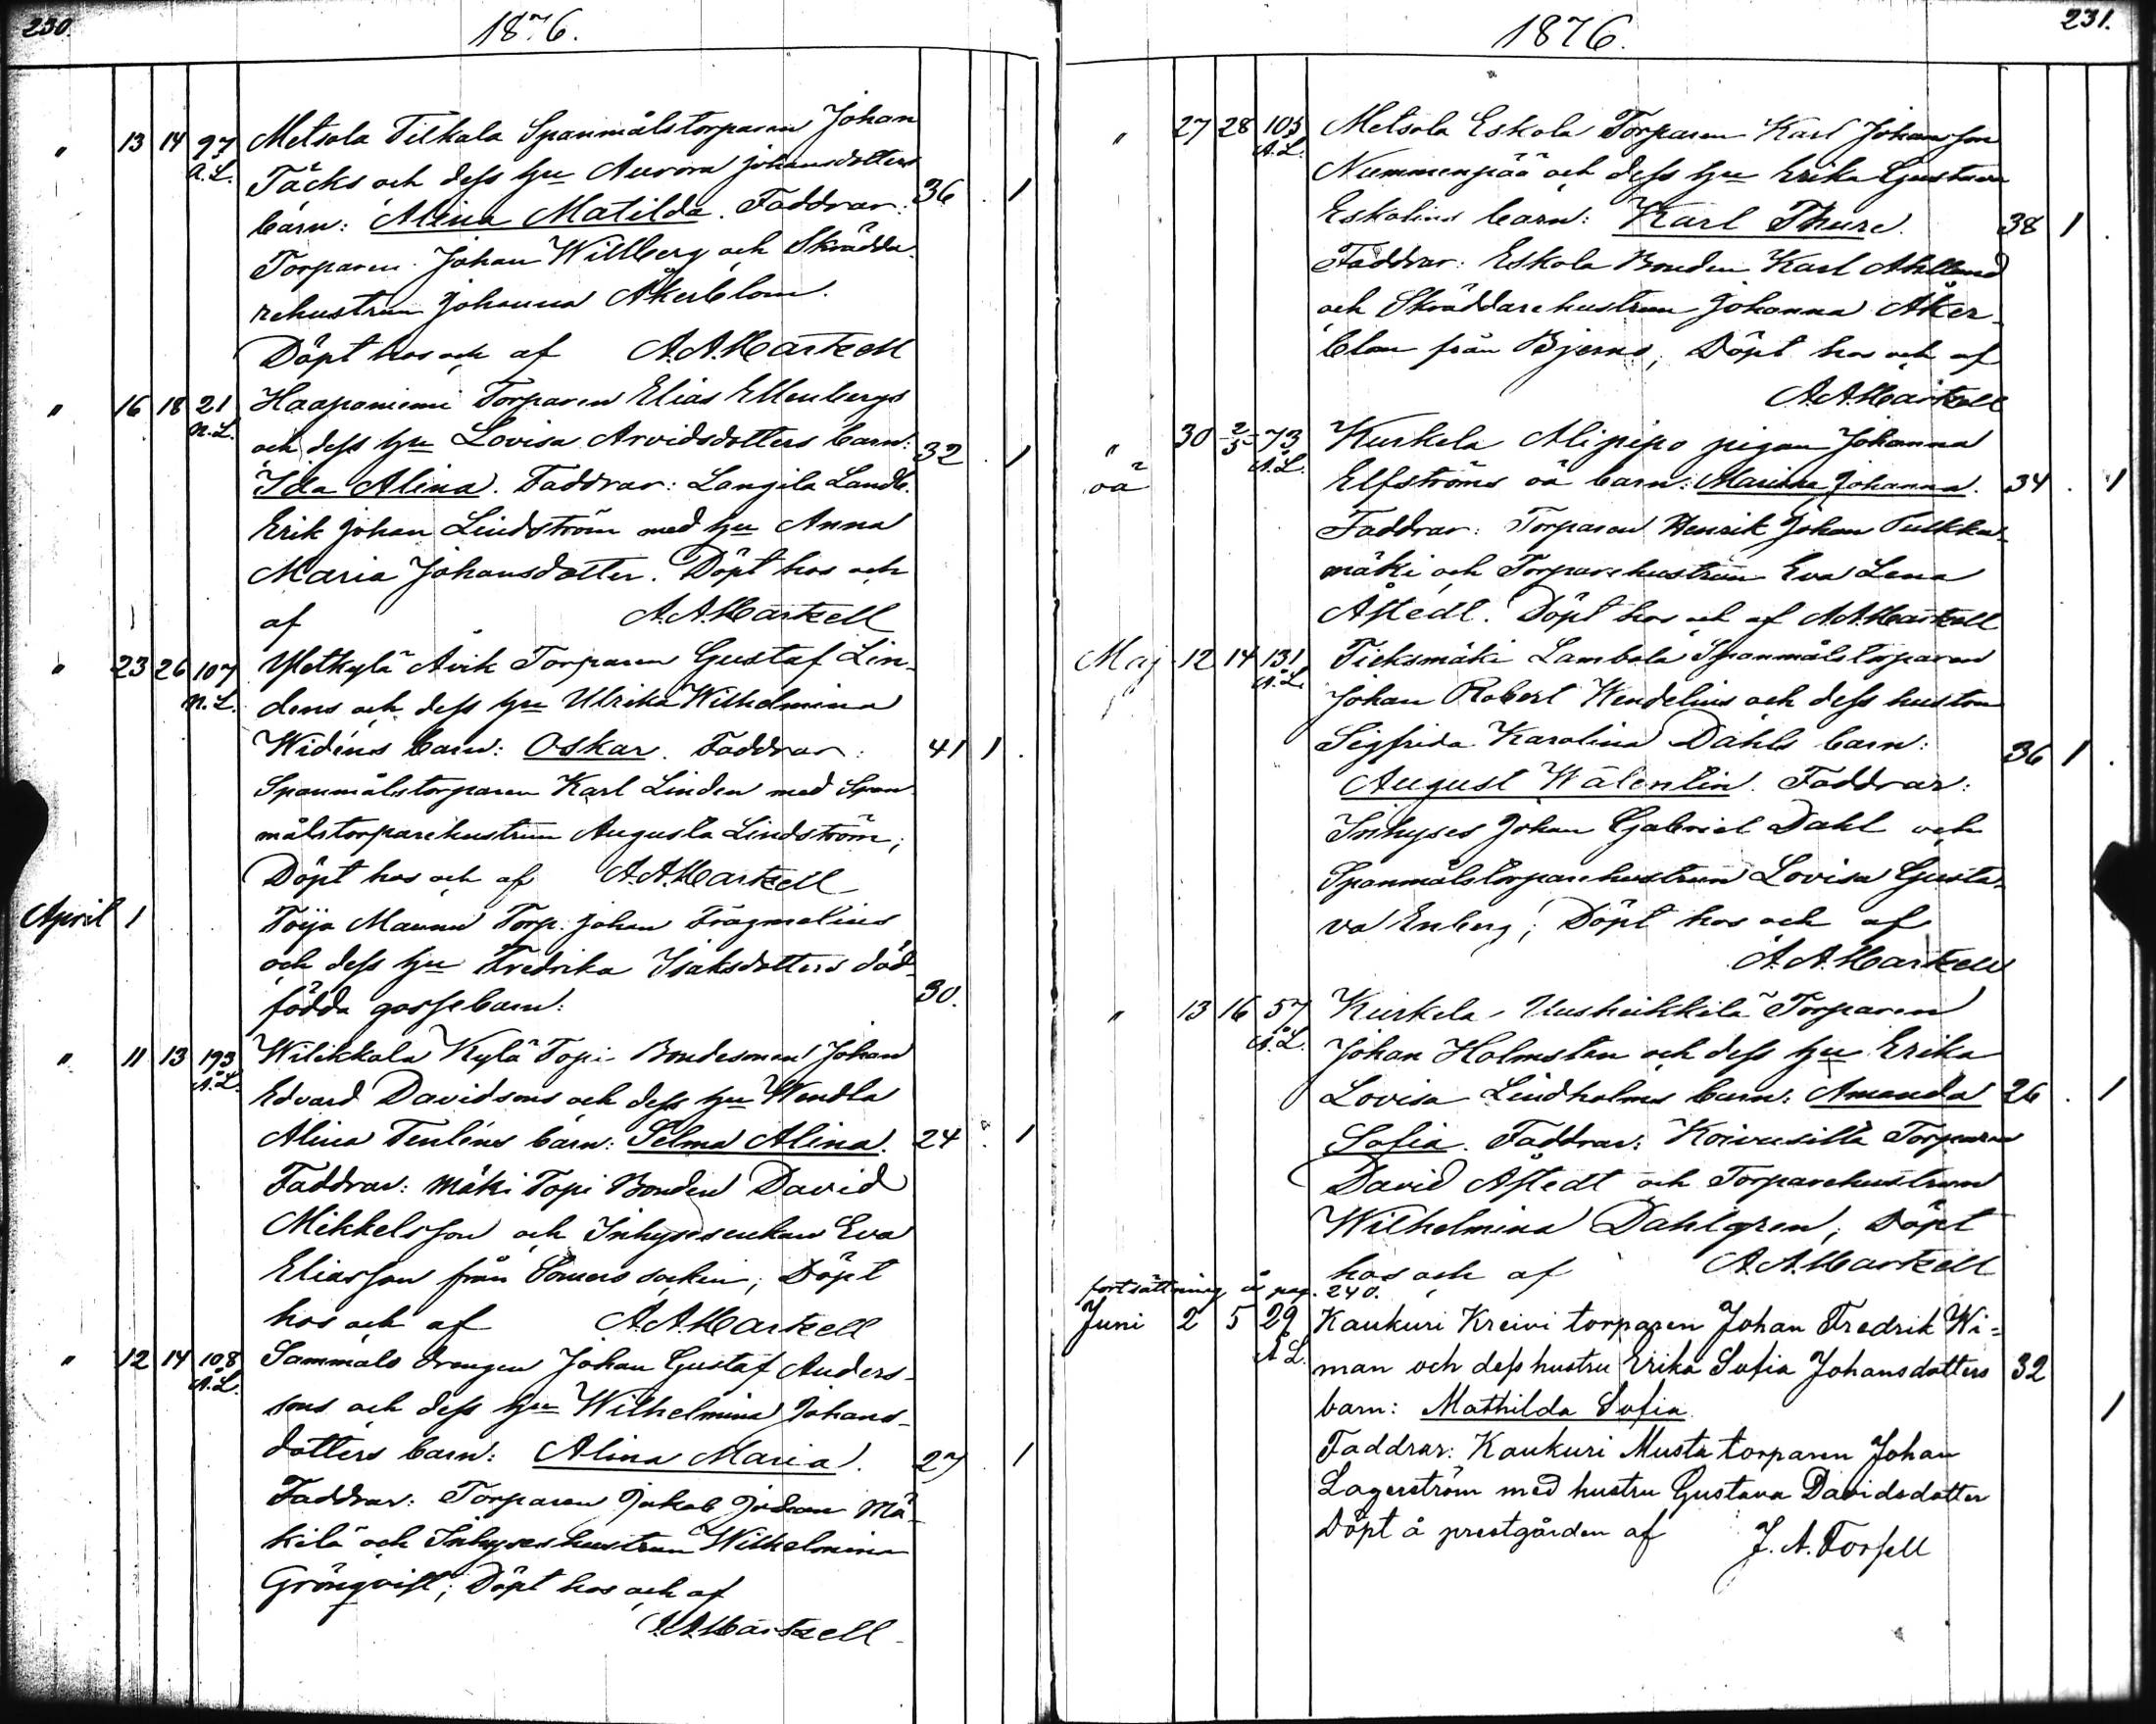 230.
1876.
" 13 14 97 Metsola Tilkala Spanmålstorparen Johan
A.L. Täcks och dess hu Aurora Johansdotters 36 . 1
barn: Alina Matilda. Faddrar:
Torparen Johan Willberg och Skrädda-
rehustrun Johanna Åkerblom.
Döpt hos och af A. A. Markell
" 16 18 21 Haaponiemi Torparen Elias Ellenbergs
N.L. och dess hu Lovisa Arvidsdotters barn: 32 . 1
Ida Alina. Faddrar: Langila Landb.
Erik Johan Lindström med hu Anna
Maria Johansdotter. Döpt hos och
af A. A. Markell
" 23 26 107 Yletkylä Avik Torparen Gustaf Lin-
N.L. dens och dess hu Ulrika Wilhelmina
Widéns barn: Oskar. Faddrar: 41 1 .
Spanmålstorparen Karl Linden med Span-
målstorparehustrun Augusta Lindström;
Döpt hos och af A. A. Markell
April 1 Toija Maunu Torp. Johan Fragmelius
och dess hu Fredrika Isaksdotters död-
födda gossebarn: 30.
" 11 13 193 Wilikkala Kylä Topi Bondesonen Johan
A.L. Edvard Davidsons och dess hu Wendla
Alina Tenléns barn: Selma Alina. 24 . 1
Faddrar: Mäki Topi Bonden David
Mikkelsson och Inhysesenkan Eva
Eliasson från Somero socken; Döpt
hos och af A. A. Markell
" 12 14 108 Sammalo drengen Johan Gustaf Anders-
A.L. sons och dess hu Wilhelmina Johans-
dotters barn: Alina Maria. 27 . 1
Faddrar: Torparen Jakob Johan Mä-
kilä och Inhyseshustrun Wilhelmina
Grönqvist; Döpt hos och af
A. A. Markell
1876.
231.
" 27 28 103 Metsola Eskola Torparen Karl Johansson
A.L. Nummenpää och dess hu Erika Gustava
Eskolins barn: Karl Thure. 38 1 .
Faddrar: Eskola Bonden Karl Ahllund
och Skräddarehustrun Johanna Åker-
blom från Bjerno; Döpt hos och af
A. A. Markell
" 30 2/5 73 Kurkela Alipipo pigan Johanna
oä A.L. Elfströms oä barn: Marina Johanna. 34 . 1
Faddrar: Torparen Henrik Johan Pulkka-
mäki och Torparehustrun Eva Lena
Åstedt. Döpt hos och af A. A. Markell
Maj 12 14 131 Tieksmäki Lambola Spanmålstorparen
A.L. Johan Robert Wendelius och dess hustru
Sigfrida Karolina Dahls barn: 36 1 .
August Wälentin. Faddrar:
Inhyses Johan Gabriel Dahl och
Spanmålstorparehustrun Lovisa Gusta-
va Enberg; Döpt hos och af
A. A. Markell
" 13 16 57 Kurkela Uusheikkilä Torparen
A.L. Johan Holmsten och dess hu Erika
Lovisa Lindholms barn: Amanda 26 . 1
Sofia. Faddrar: Koivusilta Torparen
David Åstedt och Torparehustrun
Wilhelmina Dahlgren; Döpt
hos och af A. A. Markell
fortsättning å pag. 240.
Juni 2 5 29 Kaukuri Kreivi torparen Johan Fredrik Wi=
A.L. man och dess hustru Erika Sofia Johansdotters 32
barn: Mathilda Sofia. 1
Faddrar: Kaukuri Musta torparen Johan
Lagerström med hustru Gustava Davidsdotter
Döpt å prestgården af J. A. Forsell